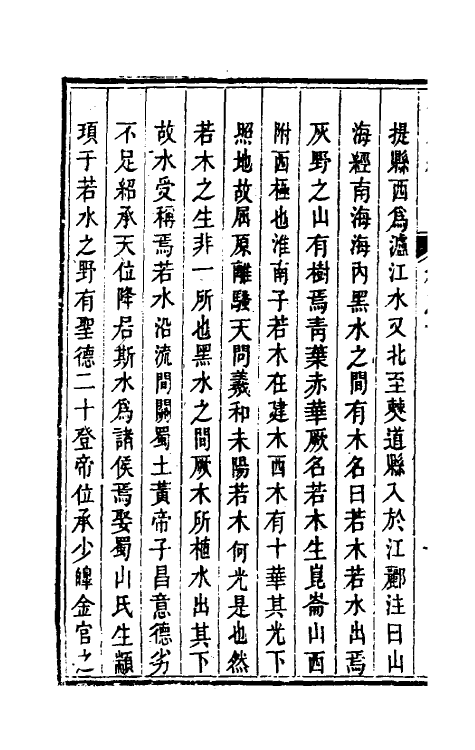 提縣西爲瀘江水又北至僰道縣入於江酈注曰山
海經南海海內黑水之間有木名曰若木若水出焉
灰野之山有樹焉青葉赤華厥名若木生崑崙山西
附西極也淮南子若木在建木西木有十華其光下
照地故屈原離騷天問羲和未陽若木何光是也然
若木之生非一所也黑水之間厥木所植水出其下
故水受稱焉若水沿流間關蜀土黃帝子昌意德劣
不足紹承天位降居斯水爲諸侯焉娶蜀山氏生顓
頊于若水之野有聖德二十登帝位承少皥金官之